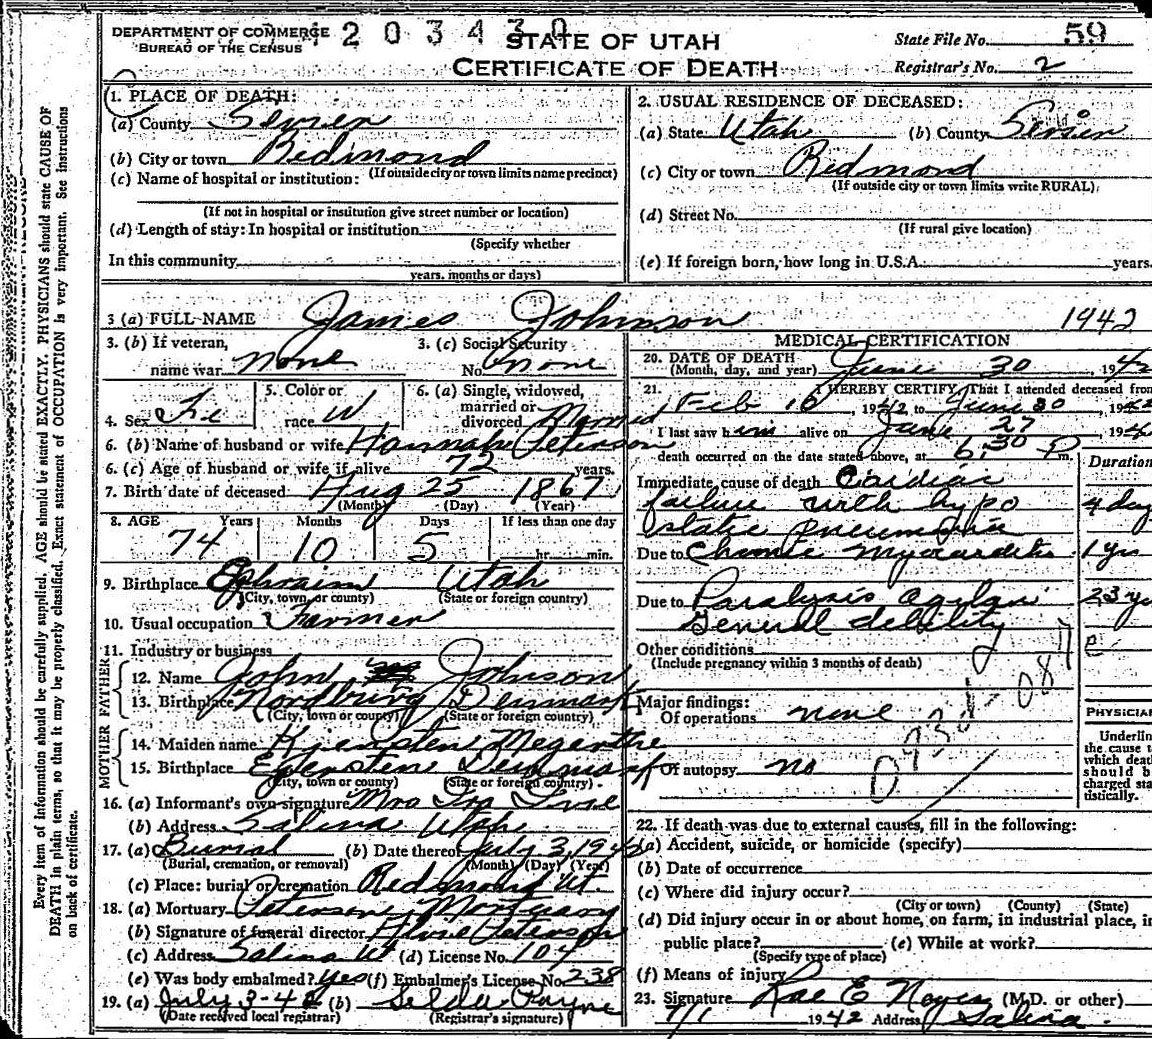 DEPARTMENT OF COMMERCE
BUREAU OF THE CENSUS
203430
STATE OF UTAH
CERTIFICATE OF DEATH
State File No. 59
Registrar's No. 2
1. PLACE OF DEATH:
(a) County Sevier
(b) City or town Redmond
(If outside city or town limits name precinct)
(c) Name of hospital or institution:
(If not in hospital or institution give street number or location)
(d) Length of stay: In hospital or institution
(Specify whether
In this community
years, months or days)
2. USUAL RESIDENCE OF DECEASED:
(a) State Utah (b) County Sevier
(c) City or town Redmond
(If outside city or town limits write RURAL)
(d) Street No.
(If rural give location)
(e) If foreign born, how long in U.S.A. years.
3 (a) FULL NAME James Johnson 1942
3. (b) If veteran, name war none
3. (c) Social Security No. none
4. Sex
5. Color or race W
6. (a) Single, widowed, married or divorced Married
6. (b) Name of husband or wife Hannah Peterson
6. (c) Age of husband or wife if alive 72 years.
7. Birth date of deceased Aug 25 1867
(Month) (Day) (Year)
8. AGE Years Months Days If less than one day
74 10 5 hr. min.
9. Birthplace Ephraim Utah
(City, town, or county) (State or foreign country)
10. Usual occupation Farmer
11. Industry or business
FATHER
12. Name John Johnson
13. Birthplace Denmark
(City, town or county) (State or foreign country)
MOTHER
14. Maiden name
15. Birthplace Denmark
(City, town or county) (State or foreign country)
16. (a) Informant's own signature Mrs Ira
(b) Address Salina Utah
17. (a) Burial (b) Date thereof July 3, 1942
(Burial, cremation, or removal) (Month) (Day) (Year)
(c) Place: burial or cremation Redmond Ut.
18. (a) Mortuary Peterson Mortuary
(b) Signature of funeral director Peterson
(c) Address Salina Ut (d) License No. 104
(e) Was body embalmed? yes (f) Embalmer's License No. 238
19. (a) July 3-42 (b) Payne
(Date received local registrar) (Registrar's signature)
MEDICAL CERTIFICATION
20. DATE OF DEATH June 30, 1942
(Month, day, and year)
21. I HEREBY CERTIFY That I attended deceased from
Feb 16, 1942 to June 30, 1942
I last saw him alive on June 27 194
death occurred on the date stated above, at 6:30 P m.
Duration
Immediate cause of death Cardiac
failure with hypo 4 day
static pneumonia
Due to Chronic Myocarditis 1 yrs
Due to Paralysis agitans 23 y
General debility
Other conditions
(Include pregnancy within 3 months of death)
Major findings:
Of operations none
Of autopsy no
PHYSICIA
Underlin
the cause t
which deat
should b
charged sta
tistically.
22. If death was due to external causes, fill in the following:
(a) Accident, suicide, or homicide (specify)
(b) Date of occurrence
(c) Where did injury occur?
(City or town) (County) (State)
(d) Did injury occur in or about home, on farm, in industrial place, in
public place? (e) While at work?
(Specify type of place)
(f) Means of injury
23. Signature Rae E Noyes (M.D. or other)
7/1 1942 Address Salina.
Every item of information should be carefully supplied. AGE should be stated EXACTLY. PHYSICIANS should state CAUSE OF
DEATH in plain terms, so that it may be properly classified. Exact statement of OCCUPATION is very important. See instructions
on back of certificate.